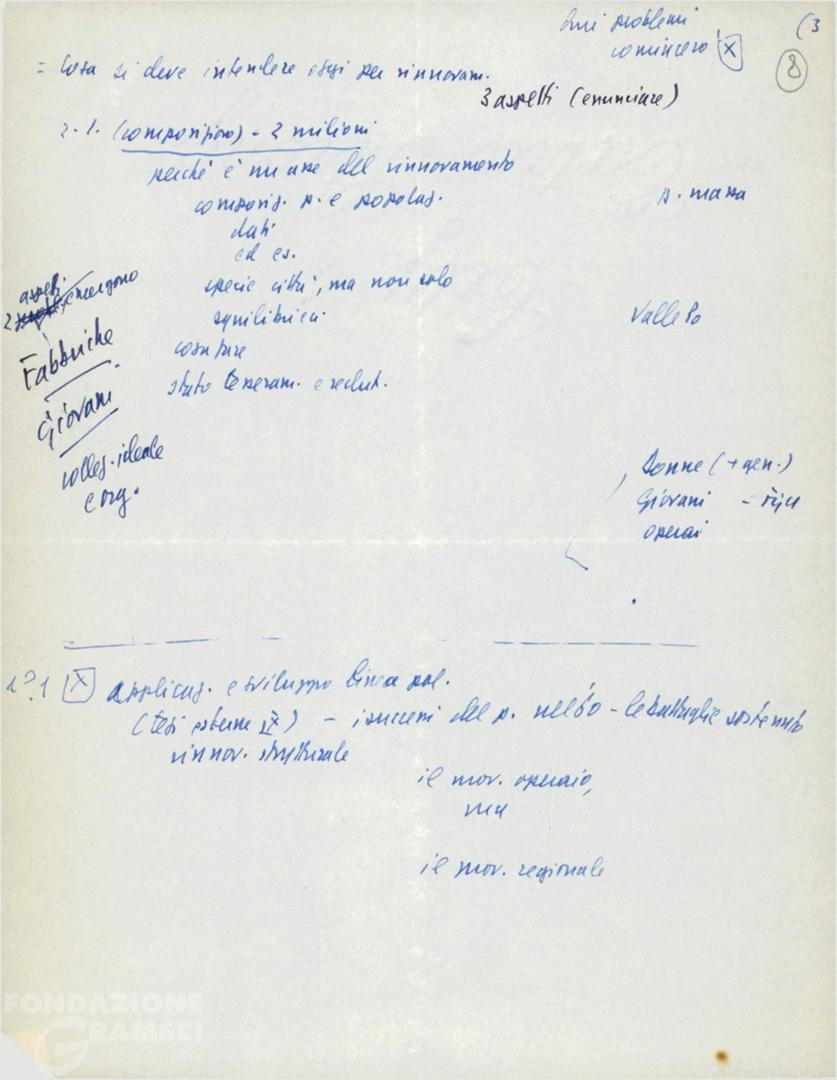 (3
8
problemi
comincerò X
= Cosa si deve intendere oggi per rinnovam.
3 aspetti (enunciare)
2.1. (composizione) - 2 milioni
perché è un asse del rinnovamento
composiz. p. e popolaz.
p. massa
dati
ed es.
specie città, ma non solo
squilibri
Valle Po
cosa fare
stato tesseram. e reclut.
2 aspetti emergono
Fabbriche
Giovani
colleg. ideale
e org.
Donne (+ gen.)
Giovani
operai
X applicaz. e sviluppo linea pol.
(tesi esterne IX) - i successi del p. nel 60 - le battaglie sostenute
rinnov. strutturale
il mov. operaio,
ma
il mov. regionale
FONDAZIONE
GRAMSCI